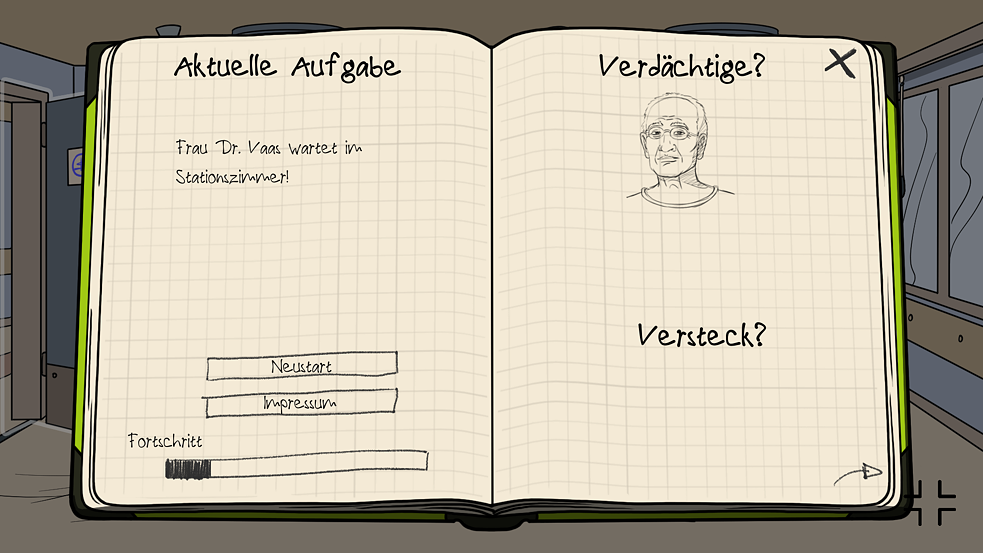 Aktuelle Aufgabe
Frau Dr. Vaas wartet im
Stationszimmer!
Neustart
Impressum
Fortschritt
Verdächtige?
Versteck?